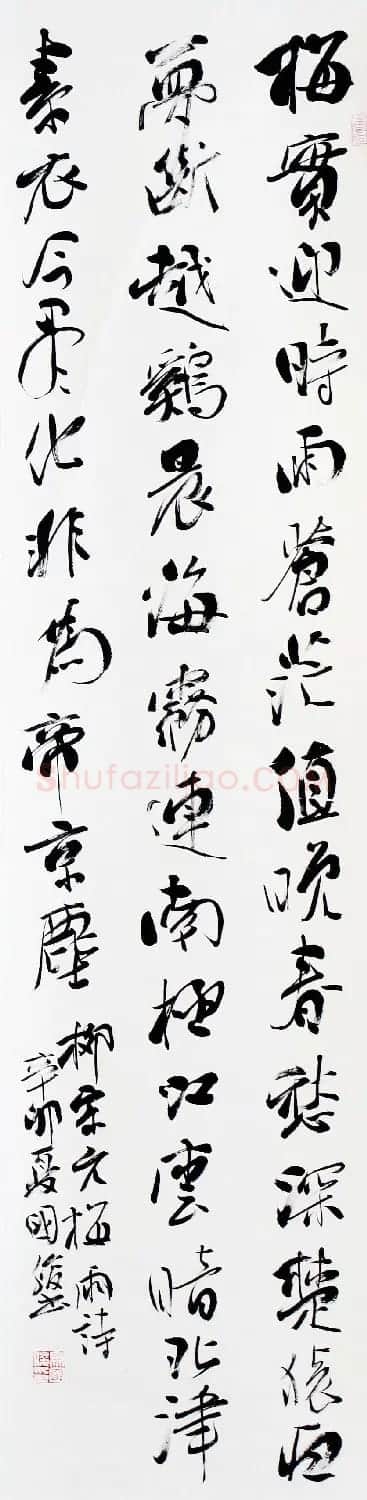 梅實迎時雨蒼茫值晚春愁深楚猿夜
夢斷越鷄晨海霧連南極江雲暗北津
素衣今盡化非為帝京塵
柳宗元梅雨詩
辛卯夏國
Shufaziliao.com